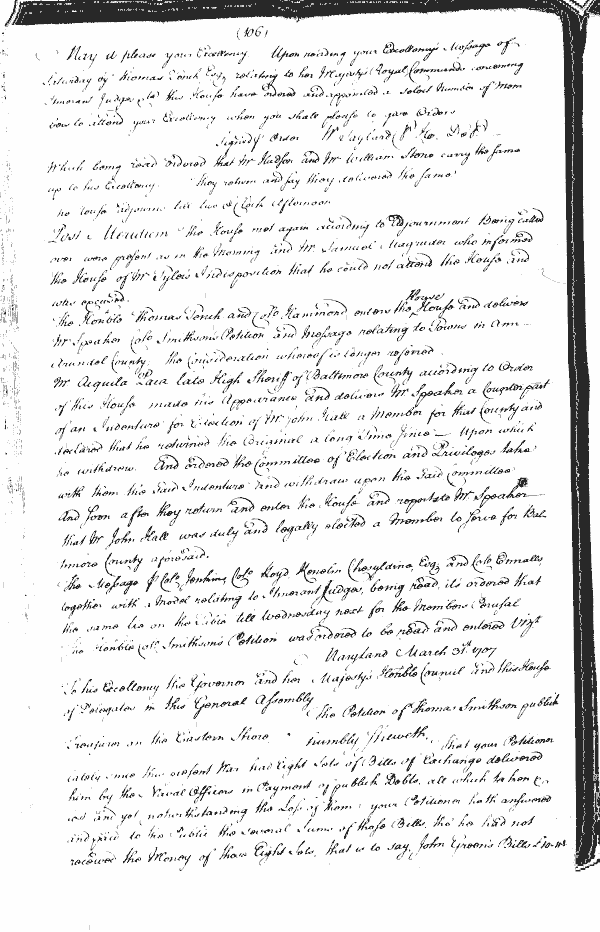 (106)
May it please your Excellency Upon reading your Excellency's Message of
Saturday by Thomas Tench Esqr relating to her Majestys Royal Commands concerning
Itinerant Judges &ca this House have ordered and appointed a select Number of Mem
bers to attend your Excellency when you shall please to give Orders
Signed p Order W Taylard Cl Ho. Del
Which being read ordered that Mr Hudson and Mr William Stone carry the same
up to his Excellency. They return and say they delivered the same
The House adjourns till two o Clock Afternoon
Post Meridiem The House met again according to Adjournment Being called
over were present as in the Morning and Mr Samuel Magruder who informed
the House of Mr Tylers Indisposition that he could not attend the House and
was excused.
The Honble Thomas Tench and Colo Hammond enters the House and delivers
Mr Speaker Colo Smithson's Petition and Message relating to Towns in Ann
Arundel County. the Consideration whereof is longer referred
Mr Aquila Paca late High Sheriff of Baltimore County according to Order
of this House made his Appearance and delivers Mr Speaker a Counterpart
of an Indenture for Election of Mr John Hall a Member for that County and
declared that he returned the Original a long Time Since Upon which
he withdrew. And ordered the Committee of Election and Priviloges take
with them the Said Indenture and withdraw upon the Said Committee
And soon after they return and enter the House and report to Mr Speaker
that Mr John Hall was duly and legally elected a Member to serve for Bal
timore County aforesaid.
The Message p Colo Jenkins Colo Lloyd, Kenelm Cheseldine, Esqr and Colo Ennalls
together with a Model relating to Itinerant Judges, being read, its ordered that
the same lie on the Table till Wednesday next for the Members Perusal
The Honble Coll Smithson's Petition was ordered to be read and entered Vizt
Maryland March 31st 1707
To his Excellency the Governor and her Majesty's Honble Council and this House
of Delegates in this General Assembly
The Petition of Thomas Smithson publick
Treasurer on the Eastern Shore humbly Sheweth. That your Petitioner
since this present War had Eight Sets of Bills of Exchange delivered
him by the Naval Officers in Payment of publick Debts, all which taken &
lost and yet notwithstanding the Loss of them your Petitioner hath answered
and paid to the Public the several Sums of those Bills, tho he had not
received the Money of those Eight Sets, that is to say, John Green's Bills